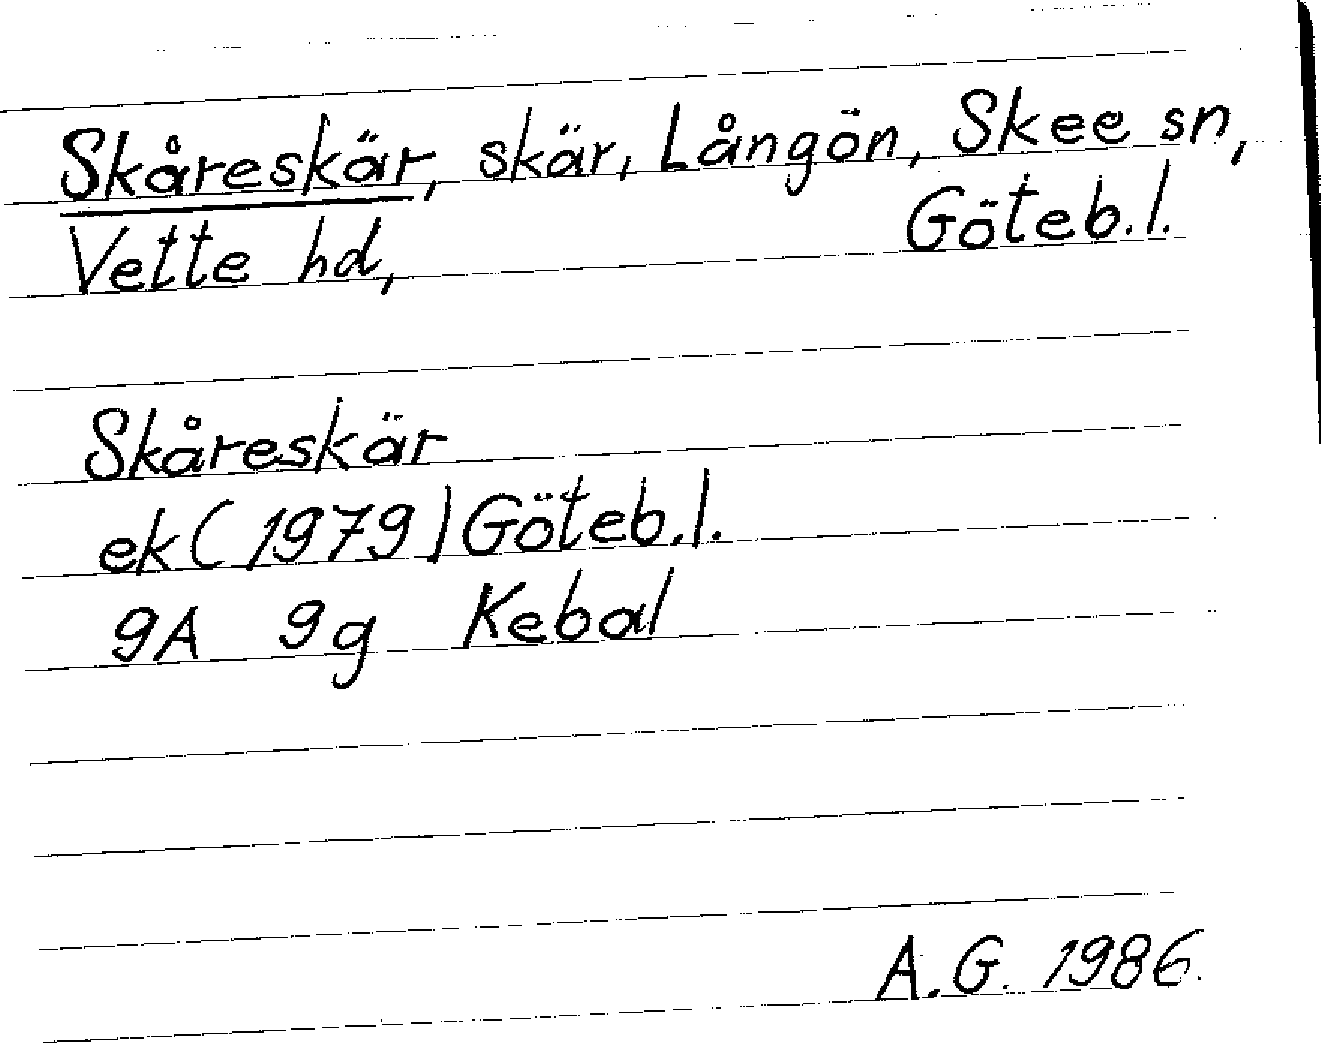 Skåreskär, skär, Långön, Skee sn,
Vette hd, Göteb.l.
Skåreskär
ek (1979) Göteb.l.
9A 9g Kebal
A.G. 1986.